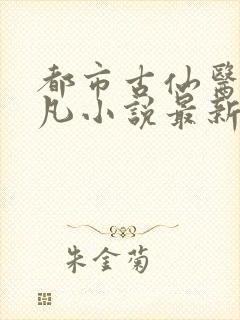 都市古仙醫
凡小說最新
朱金菊